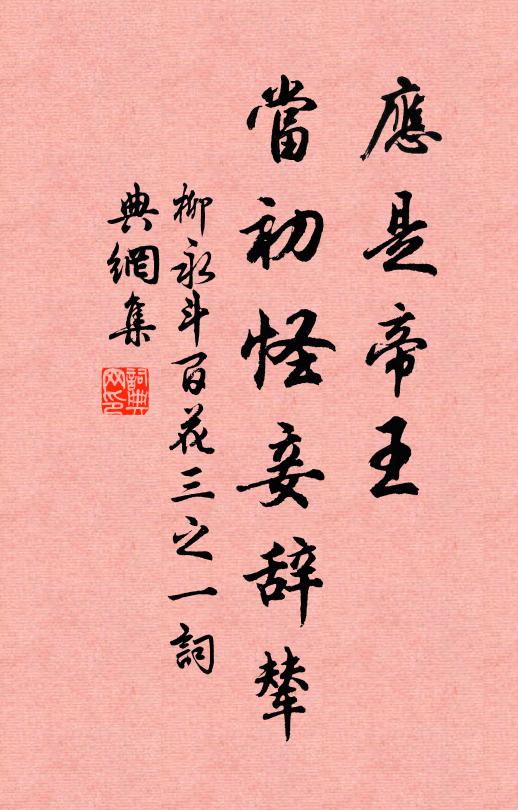 應是帝王
當初怪妾辞輦
柳永斗百花三之一詞
典網集
詞典網印